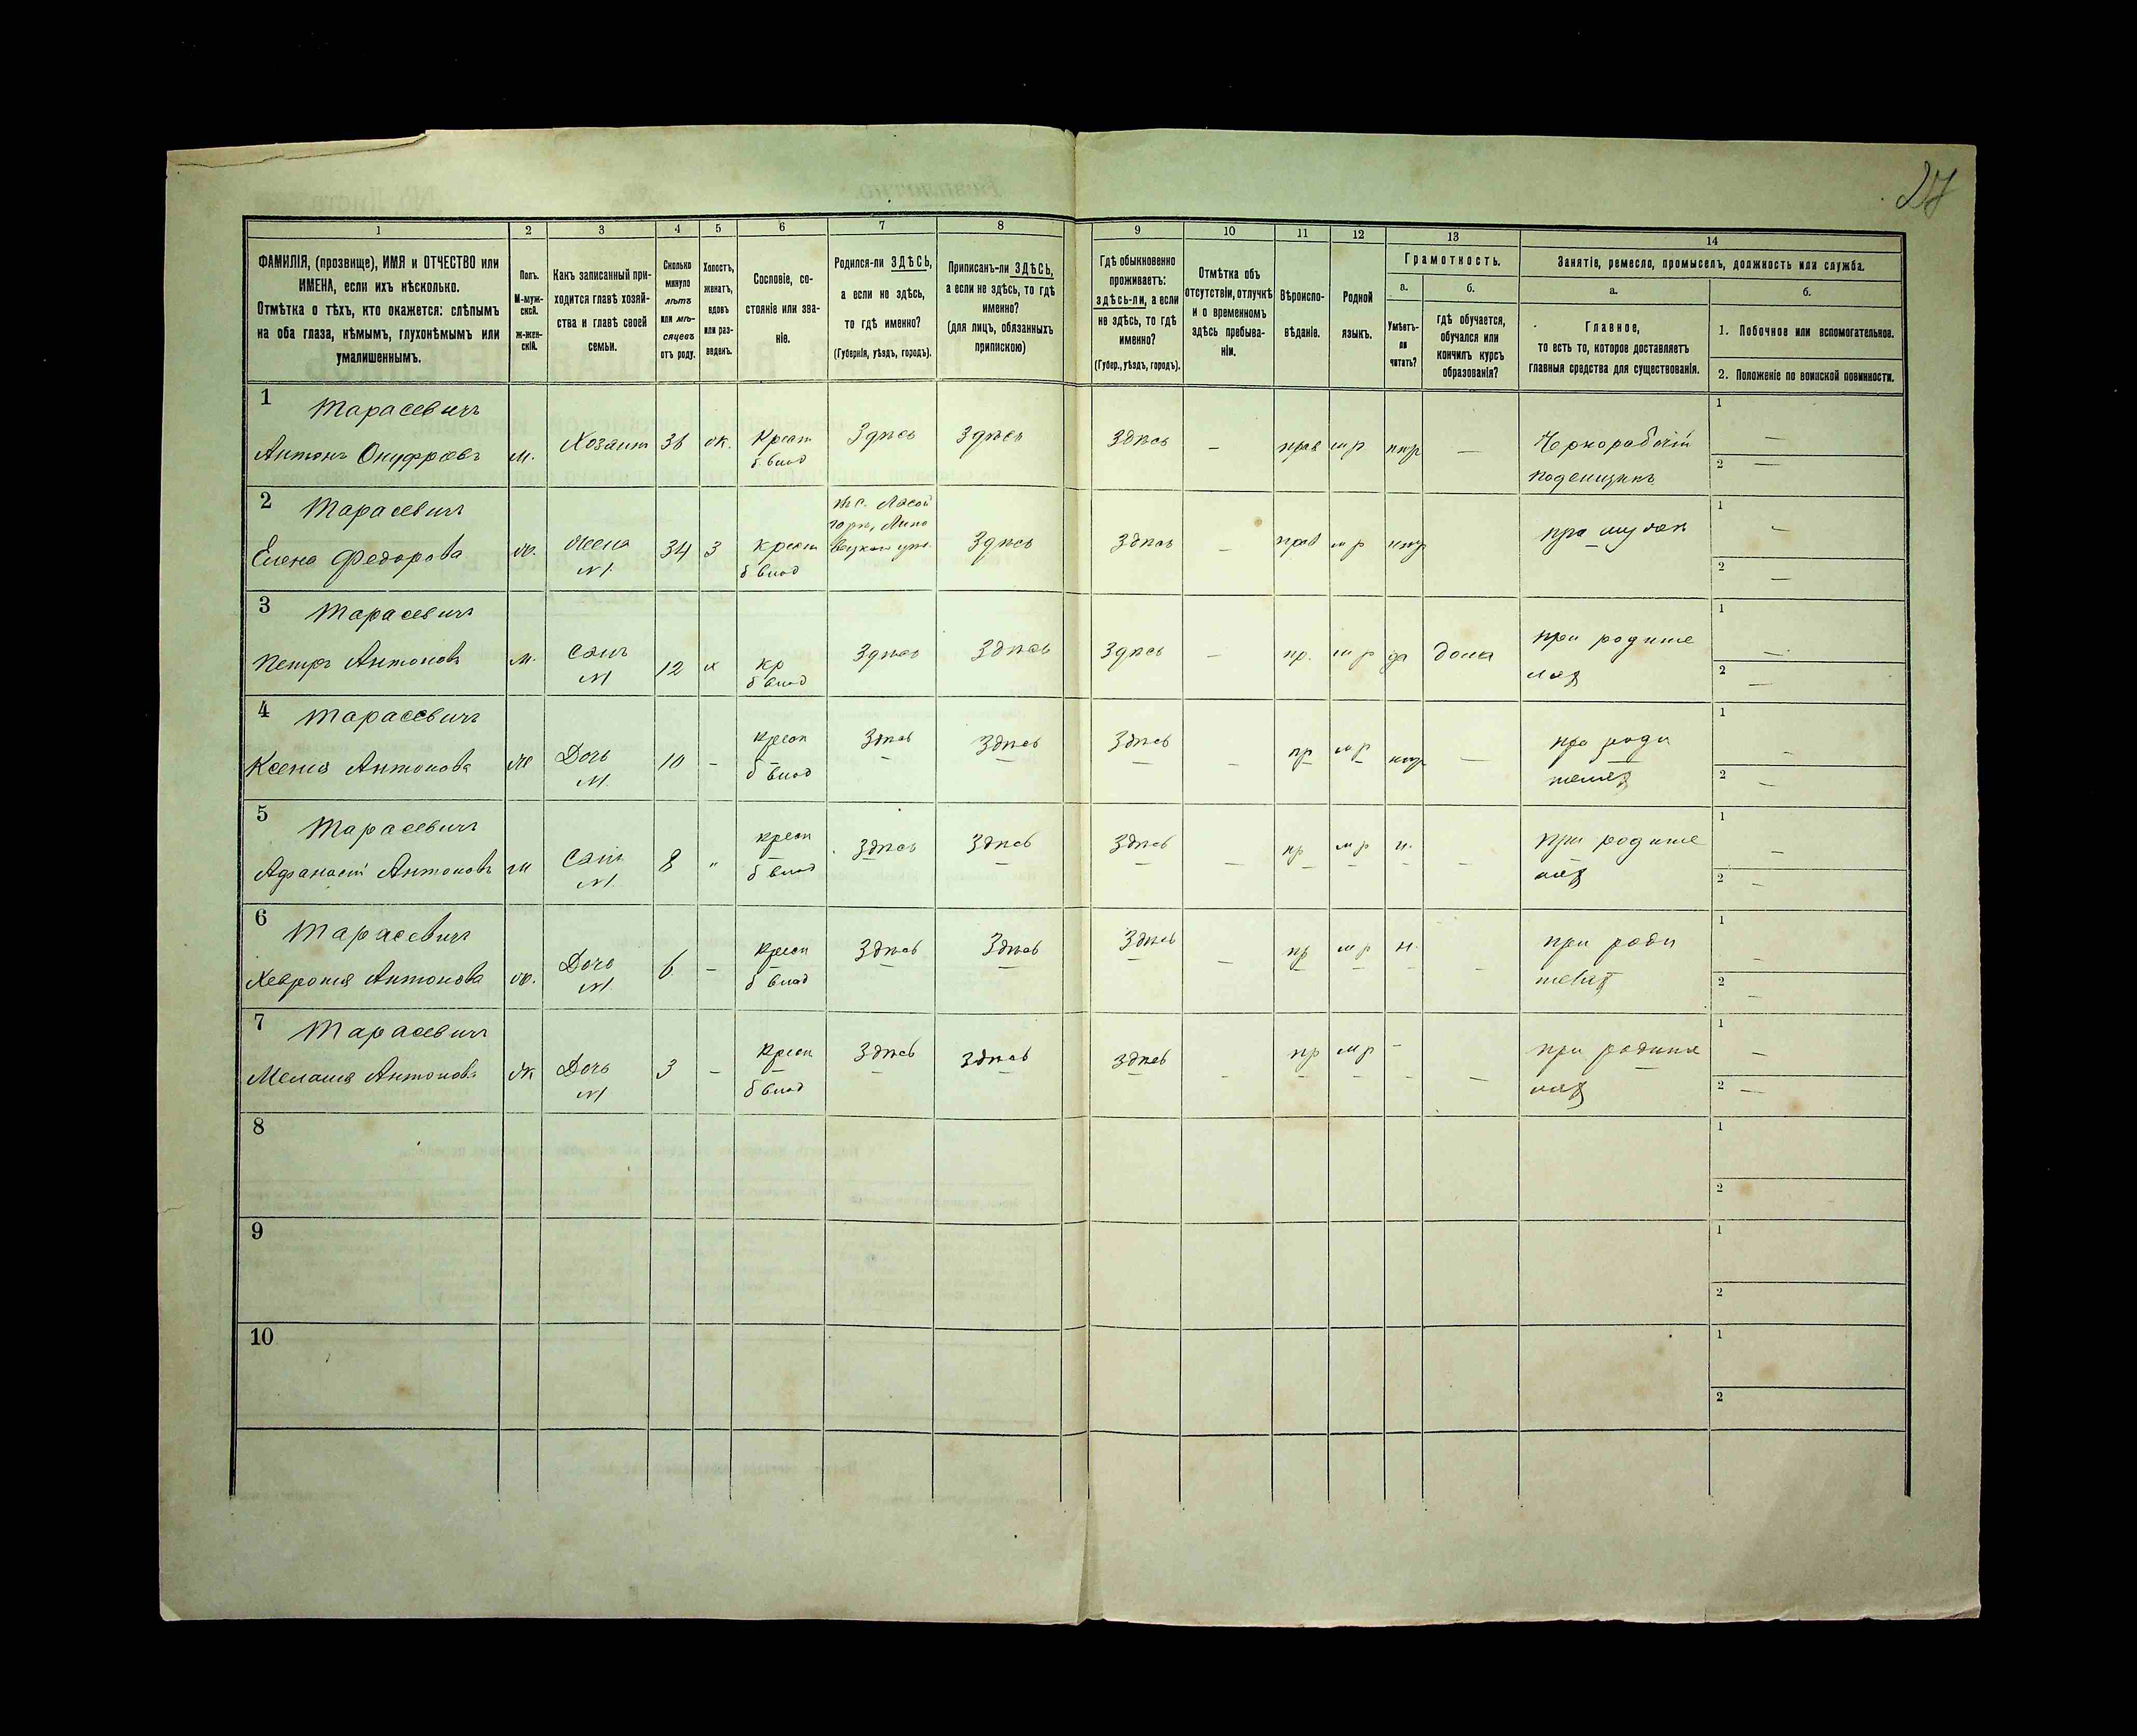 27
1
2
3
4
5
6
7
8
9
10
11
12
13
14
ФАМИЛІЯ, (прозвище), ИМЯ и ОТЧЕСТВО или
ИМЕНА, если ихъ нѣсколько.
Отмѣтка о тѣхъ, кто окажется: слѣпымъ
на оба глаза, нѣмымъ, глухонѣмымъ или
умалишеннымъ.
Полъ.
М-муж-
ской.
ж-жен-
скій.
Какъ записанный при-
ходится главѣ хозяй-
ства и главѣ своей
семьи.
Сколько
минуло
лѣтъ
или мѣ-
сяцевъ
отъ роду.
Холостъ,
женатъ,
вдовъ
или раз-
веденъ.
Сословіе, со-
стояніе или зва-
ніе.
Родился-ли ЗДѢСЬ,
а если не здѣсь,
то гдѣ именно?
(Губернія, уѣздъ, городъ).
Приписанъ-ли ЗДѢСЬ,
а если не здѣсь, то гдѣ
именно?
(для лицъ, обязанныхъ
припискою)
Гдѣ обыкновенно
проживаетъ:
здѣсь-ли, а если
не здѣсь, то гдѣ
именно?
(Губер., уѣздъ, городъ).
Отмѣтка объ
отсутствіи, отлучкѣ
и о временномъ
здѣсь пребыва-
ніи.
Вѣроиспо-
вѣданіе.
Родной
языкъ.
Грамотность.
а.
Умѣетъ-
ли
читать?
б.
гдѣ обучается,
обучался или
кончилъ курсъ
образованія?
Занятіе, ремесло, промыселъ, должность или служба.
а.
Главное,
то есть то, которое доставляетъ
главныя средства для существованія.
б.
1. Побочное или вспомогательное.
2. Положеніе по воинской повинности.
1 Тарасевичъ
Антонъ Онуфріевъ м. Хозяинъ 38 ж. Крест Здѣсь Здѣсь Здѣсь — прав мр нгр — Чернорабочій
б. влад
поденщикъ
1 —
2 —
2 Тарасевичъ
Елена Федорова ж. Жена 34 з крест Здѣсь Здѣсь — прав мр нгр при мужѣ
м б влад
1 —
2 —
3 Тарасевичъ
Петръ Антоновъ м. Сынъ 12 х кр Здѣсь Здѣсь Здѣсь — пр. мр да дома при родите
м б влад
ляхъ
1 —
2 —
4 Тарасевичъ
Ксенія Антонова ж Дочь 10 - крест Здѣсь Здѣсь Здѣсь — пр мр нгр — при роди
м б влад
теляхъ
1 —
2 —
5 Тарасевичъ
Афанасій Антоновъ м Сынъ 8 " крест Здѣсь Здѣсь Здѣсь — пр мр н. — при родите
м б влад
ляхъ
1 —
2 —
6 Тарасевичъ
Хевронія Антонова ж. Дочь 6 - крест Здѣсь Здѣсь Здѣсь — пр мр н. — при роди
м б влад
теляхъ
1 —
2 —
7 Тарасевичъ
Меланія Антонова ж Дочь 3 - Крест Здѣсь Здѣсь Здѣсь — пр мр - — при родите
м б влад
ляхъ
1 —
2 —
8
1
2
9
1
2
10
1
2